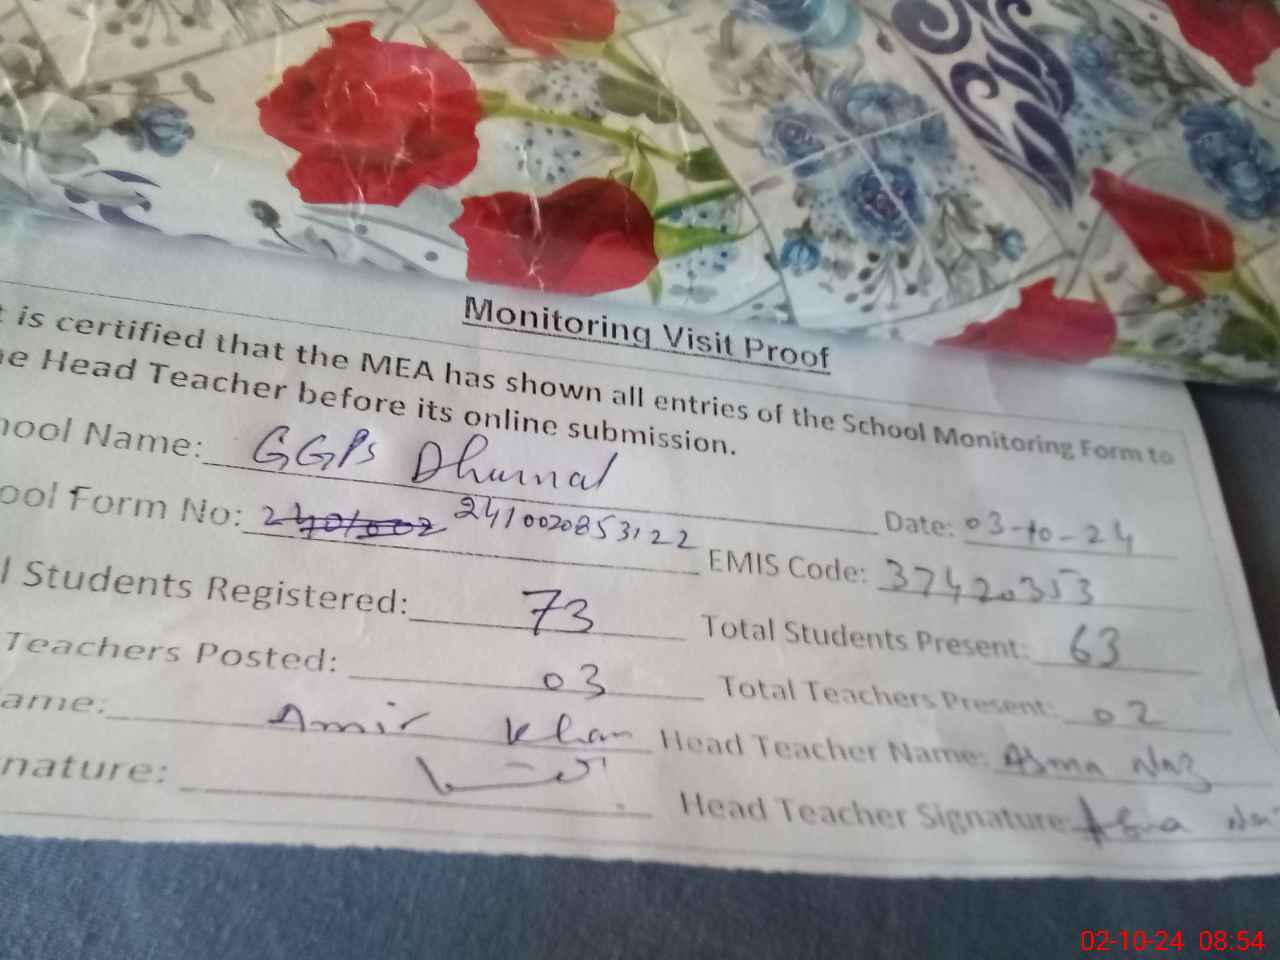 Monitoring Visit Proof
t is certified that the MEA has shown all entries of the School Monitoring Form to
e Head Teacher before its online submission.
hool Name: GGPS Dhurnal Date: 03-10-24
ool Form No: 2410020853122 EMIS Code: 37420353
l Students Registered: 73 Total Students Present: 63
Teachers Posted: 03 Total Teachers Present: 02
ame: Amir Khan Head Teacher Name: Asma Naz
nature: Head Teacher Signature: Asma Naz
02-10-24 08:54